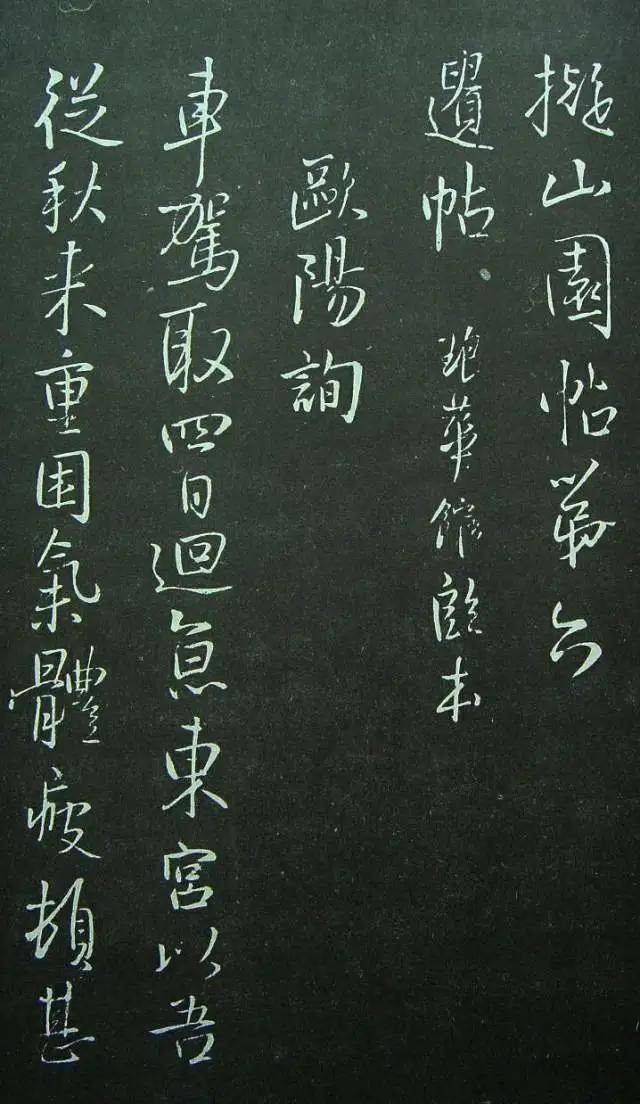 擬山園帖第六
遺帖 琅華館本
歐陽詢
車駕取四日迴東宮以吾
從秋来重困氣體疲頓甚